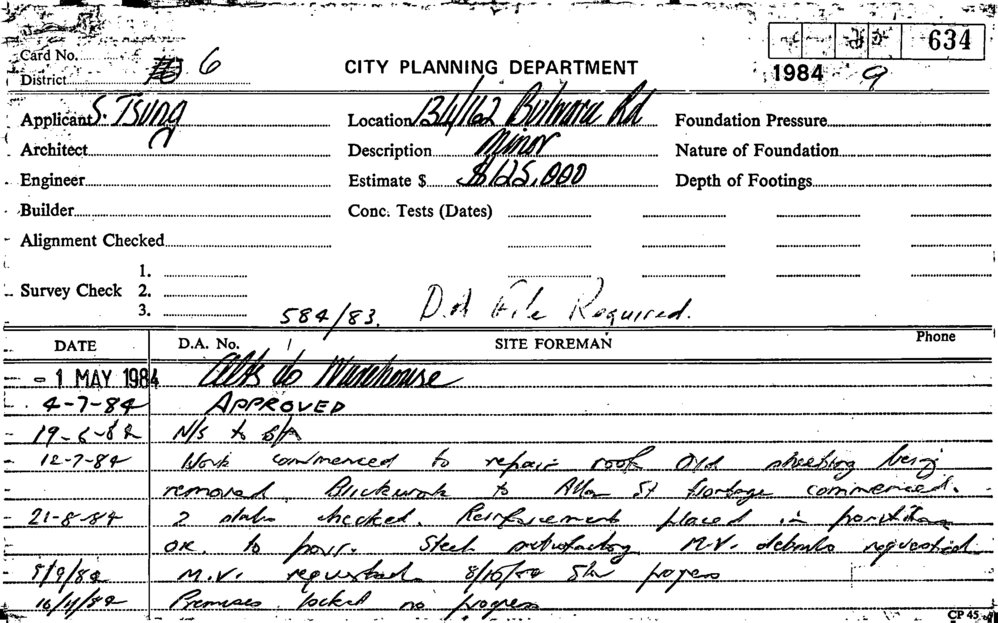 634
Card No.
District 6
CITY PLANNING DEPARTMENT
1984 9
Applicant S. Tsung Location 134/162 Bulwara Rd Foundation Pressure
Architect Description Minor Nature of Foundation
Engineer Estimate $ $125,000 Depth of Footings
Builder Conc. Tests (Dates)
Alignment Checked
1.
Survey Check 2.
3.
584/83. D.A File Required.
DATE D.A. No. SITE FOREMAN Phone
- 1 MAY 1984 Alts to Warehouse
4-7-84 APPROVED
19-6-84 N/S to B/A
12-7-84 Work commenced to repair roof Old sheeting being
removed. Brickwork to Allen St frontage commenced.
21-8-84 2 slabs checked. Reinforcement placed in position
OK. to pour. Steel satisfactory M.V. details requested
5/9/84 M.V. requested 8/10/84 Slow progress
16/11/84 Premises locked no progress
CP 45